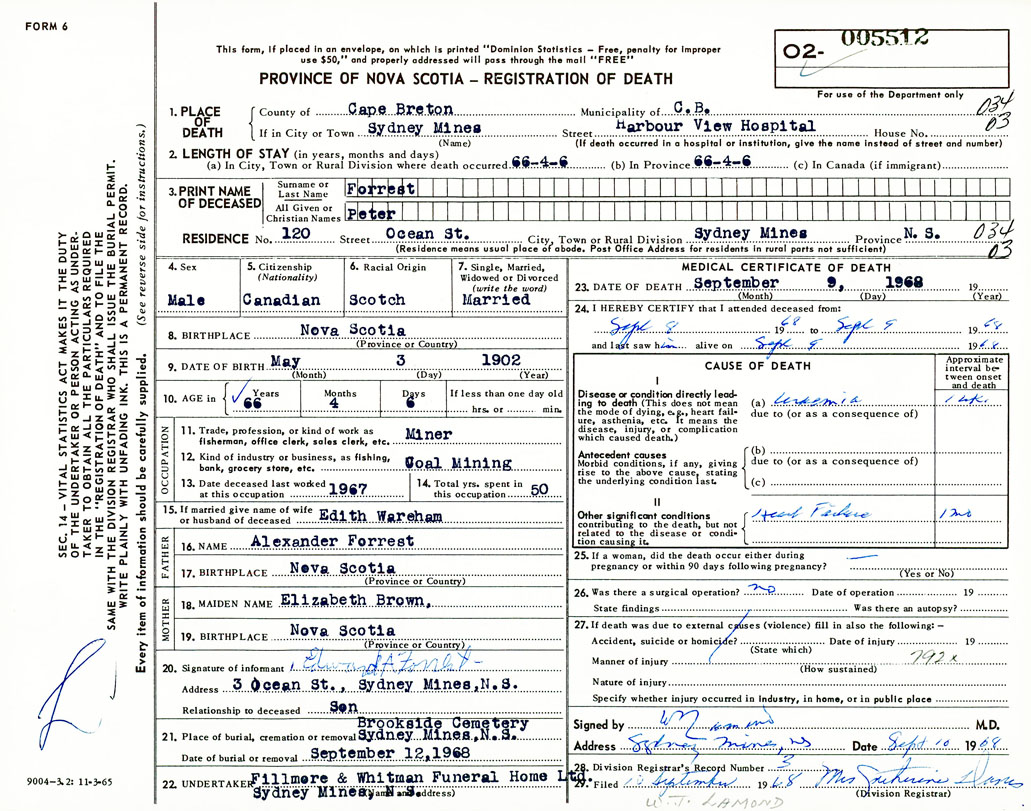 FORM 6
This form, if placed in an envelope, on which is printed "Dominion Statistics – Free, penalty for improper
use $50," and properly addressed will pass through the mail "FREE"
PROVINCE OF NOVA SCOTIA – REGISTRATION OF DEATH
02- 005512
For use of the Department only
034
03
1. PLACE OF DEATH
County of Cape Breton Municipality of C.B.
If in City or Town Sydney Mines Street Harbour View Hospital House No.
(Name) (If death occurred in a hospital or institution, give the name instead of street and number)
2. LENGTH OF STAY (in years, months and days)
(a) In City, Town or Rural Division where death occurred 66-4-6 (b) In Province 66-4-6 (c) In Canada (if immigrant)
3. PRINT NAME OF DECEASED
Surname or Last Name Forrest
All Given or Christian Names Peter
RESIDENCE No. 120 Street Ocean St. City, Town or Rural Division Sydney Mines Province N. S.
(Residence means usual place of abode. Post Office Address for residents in rural parts not sufficient)
034
03
4. Sex
Male
5. Citizenship
(Nationality)
Canadian
6. Racial Origin
Scotch
7. Single, Married,
Widowed or Divorced
(write the word)
Married
8. BIRTHPLACE Nova Scotia
(Province or Country)
9. DATE OF BIRTH May 3 1902
(Month) (Day) (Year)
10. AGE in Years Months Days If less than one day old
66 4 6 hrs. or min.
OCCUPATION
11. Trade, profession, or kind of work as
fisherman, office clerk, sales clerk, etc. Miner
12. Kind of industry or business, as fishing,
bank, grocery store, etc. Coal Mining
13. Date deceased last worked
at this occupation 1967
14. Total yrs. spent in
this occupation 50
15. If married give name of wife
or husband of deceased Edith Wareham
FATHER
16. NAME Alexander Forrest
17. BIRTHPLACE Nova Scotia
(Province or Country)
MOTHER
18. MAIDEN NAME Elizabeth Brown,
19. BIRTHPLACE Nova Scotia
(Province or Country)
20. Signature of informant Edward A Forrest
Address 3 Ocean St., Sydney Mines,N.S.
Relationship to deceased Son
21. Place of burial, cremation or removal Brookside Cemetery
Sydney Mines,N.S.
Date of burial or removal September 12,1968
22. UNDERTAKER Fillmore & Whitman Funeral Home Ltd.
Sydney Mines, N.S.
MEDICAL CERTIFICATE OF DEATH
23. DATE OF DEATH September 9, 1968 19
(Month) (Day) (Year)
24. I HEREBY CERTIFY that I attended deceased from:
Sept 8 1968 to Sept 9 1968
and last saw him alive on Sept 9 1968
CAUSE OF DEATH
Approximate
interval be-
tween onset
and death
I
Disease or condition directly lead-
ing to death (This does not mean
the mode of dying, e.g., heart fail-
ure, asthenia, etc. It means the
disease, injury, or complication
which caused death.)
(a) Leukemia
due to (or as a consequence of)
Antecedent causes
Morbid conditions, if any, giving
rise to the above cause, stating
the underlying condition last.
(b)
due to (or as a consequence of)
(c)
II
Other significant conditions
contributing to the death, but not
related to the disease or condi-
tion causing it.
Heart Failure 1 mo
25. If a woman, did the death occur either during
pregnancy or within 90 days following pregnancy?
(Yes or No)
26. Was there a surgical operation? no Date of operation 19
State findings Was there an autopsy?
27. If death was due to external causes (violence) fill in also the following: –
Accident, suicide or homicide? Date of injury 19
(State which)
Manner of injury 792x
(How sustained)
Nature of injury
Specify whether injury occurred in industry, in home, or in public place
Signed by M.D.
Address Sydney Mines, NS Date Sept 10 1968
28. Division Registrar's Record Number 3
29. Filed 10 September 1968 Mrs
(Division Registrar)
W.T. LAMOND
SEC. 14 – VITAL STATISTICS ACT MAKES IT THE DUTY
OF THE UNDERTAKER OR PERSON ACTING AS UNDER-
TAKER TO OBTAIN ALL THE PARTICULARS REQUIRED
IN THE "REGISTRATION OF DEATH" AND TO FILE THE
SAME WITH THE DIVISION REGISTRAR WHO SHALL ISSUE THE BURIAL PERMIT.
WRITE PLAINLY WITH UNFADING INK. THIS IS A PERMANENT RECORD.
Every item of information should be carefully supplied. (See reverse side for instructions.)
9004-3.2: 11-3-65